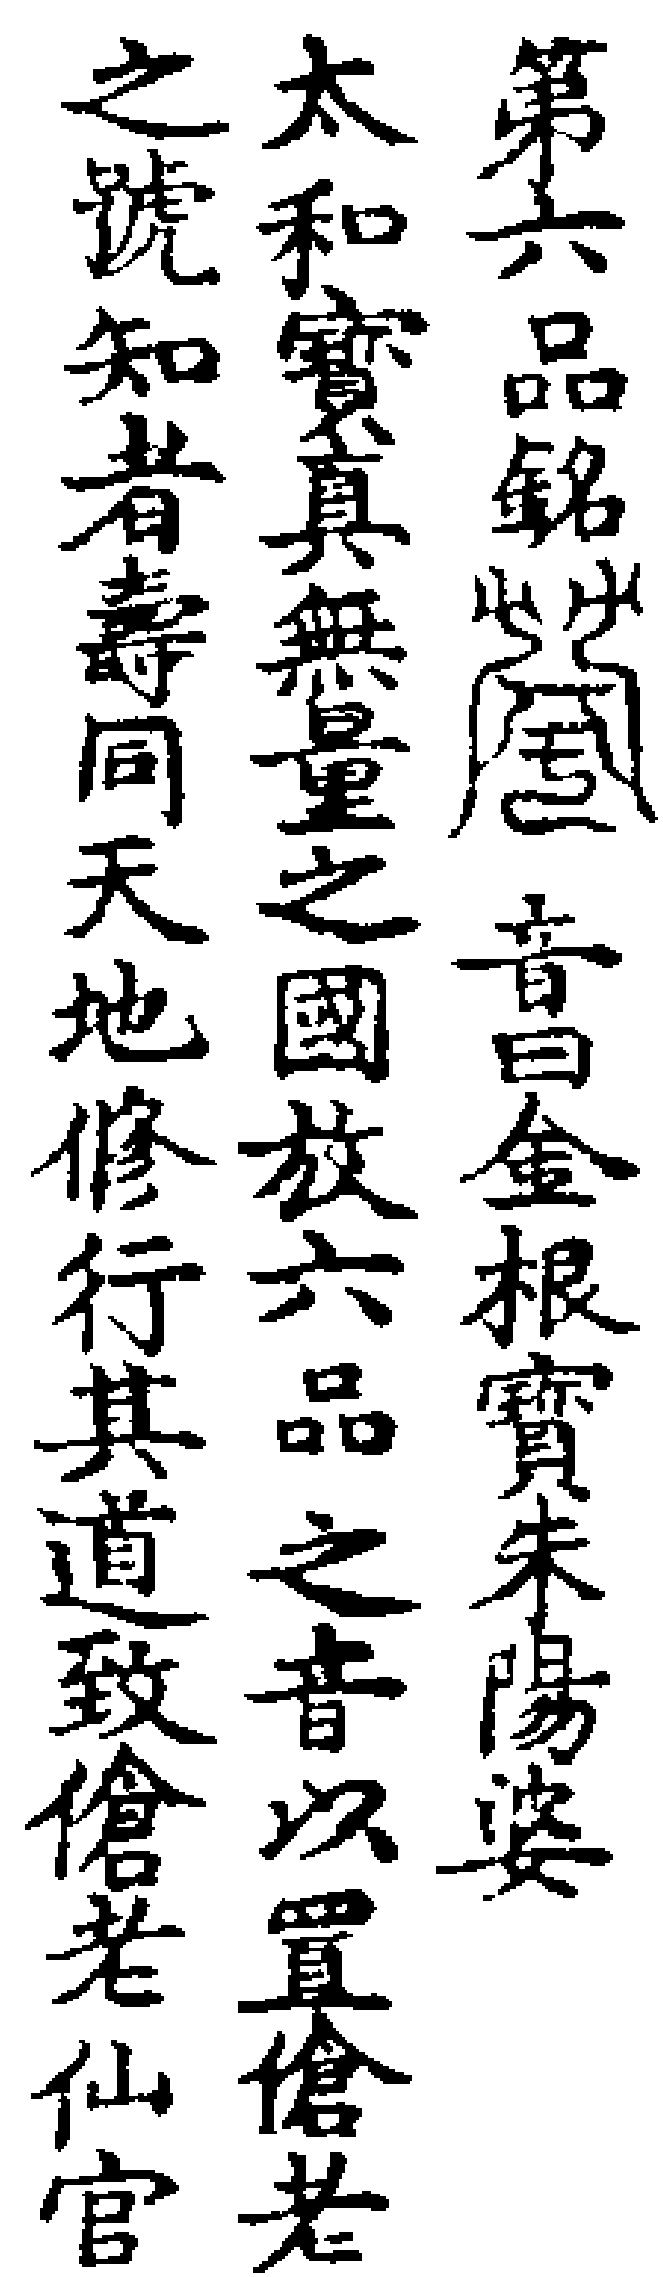 第六品銘音曰金根寶朱陽婆
太和寶真無量之國放六品之音以置傖老
之號知者壽同天地修行其道致傖老仙官